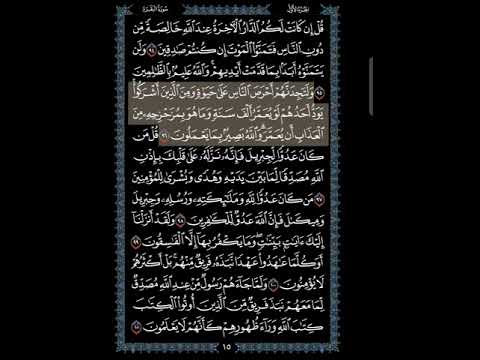 الجزء الأول سورة البقرة
قُلْ إِن كَانَتْ لَكُمُ ٱلدَّارُ ٱلْـَٔاخِرَةُ عِندَ ٱللَّهِ خَالِصَةً مِّن
دُونِ ٱلنَّاسِ فَتَمَنَّوُا۟ ٱلْمَوْتَ إِن كُنتُمْ صَٰدِقِينَ ٩٤ وَلَن
يَتَمَنَّوْهُ أَبَدًۢا بِمَا قَدَّمَتْ أَيْدِيهِمْ ۗ وَٱللَّهُ عَلِيمٌۢ بِٱلظَّٰلِمِينَ
٩٥ وَلَتَجِدَنَّهُمْ أَحْرَصَ ٱلنَّاسِ عَلَىٰ حَيَوٰةٍ وَمِنَ ٱلَّذِينَ أَشْرَكُوا۟ ۚ
يَوَدُّ أَحَدُهُمْ لَوْ يُعَمَّرُ أَلْفَ سَنَةٍ وَمَا هُوَ بِمُزَحْزِحِهِۦ مِنَ
ٱلْعَذَابِ أَن يُعَمَّرَ ۗ وَٱللَّهُ بَصِيرٌۢ بِمَا يَعْمَلُونَ ٩٦ قُلْ مَن
كَانَ عَدُوًّا لِّجِبْرِيلَ فَإِنَّهُۥ نَزَّلَهُۥ عَلَىٰ قَلْبِكَ بِإِذْنِ
ٱللَّهِ مُصَدِّقًا لِّمَا بَيْنَ يَدَيْهِ وَهُدًى وَبُشْرَىٰ لِلْمُؤْمِنِينَ
٩٧ مَن كَانَ عَدُوًّا لِّلَّهِ وَمَلَٰٓئِكَتِهِۦ وَرُسُلِهِۦ وَجِبْرِيلَ
وَمِيكَىٰلَ فَإِنَّ ٱللَّهَ عَدُوٌّ لِّلْكَٰفِرِينَ ٩٨ وَلَقَدْ أَنزَلْنَآ
إِلَيْكَ ءَايَٰتٍۭ بَيِّنَٰتٍ ۖ وَمَا يَكْفُرُ بِهَآ إِلَّا ٱلْفَٰسِقُونَ ٩٩
أَوَكُلَّمَا عَٰهَدُوا۟ عَهْدًا نَّبَذَهُۥ فَرِيقٌ مِّنْهُم ۚ بَلْ أَكْثَرُهُمْ
لَا يُؤْمِنُونَ ١٠٠ وَلَمَّا جَآءَهُمْ رَسُولٌ مِّنْ عِندِ ٱللَّهِ مُصَدِّقٌ
لِّمَا مَعَهُمْ نَبَذَ فَرِيقٌ مِّنَ ٱلَّذِينَ أُوتُوا۟ ٱلْكِتَٰبَ
كِتَٰبَ ٱللَّهِ وَرَآءَ ظُهُورِهِمْ كَأَنَّهُمْ لَا يَعْلَمُونَ ١٠١
١٥